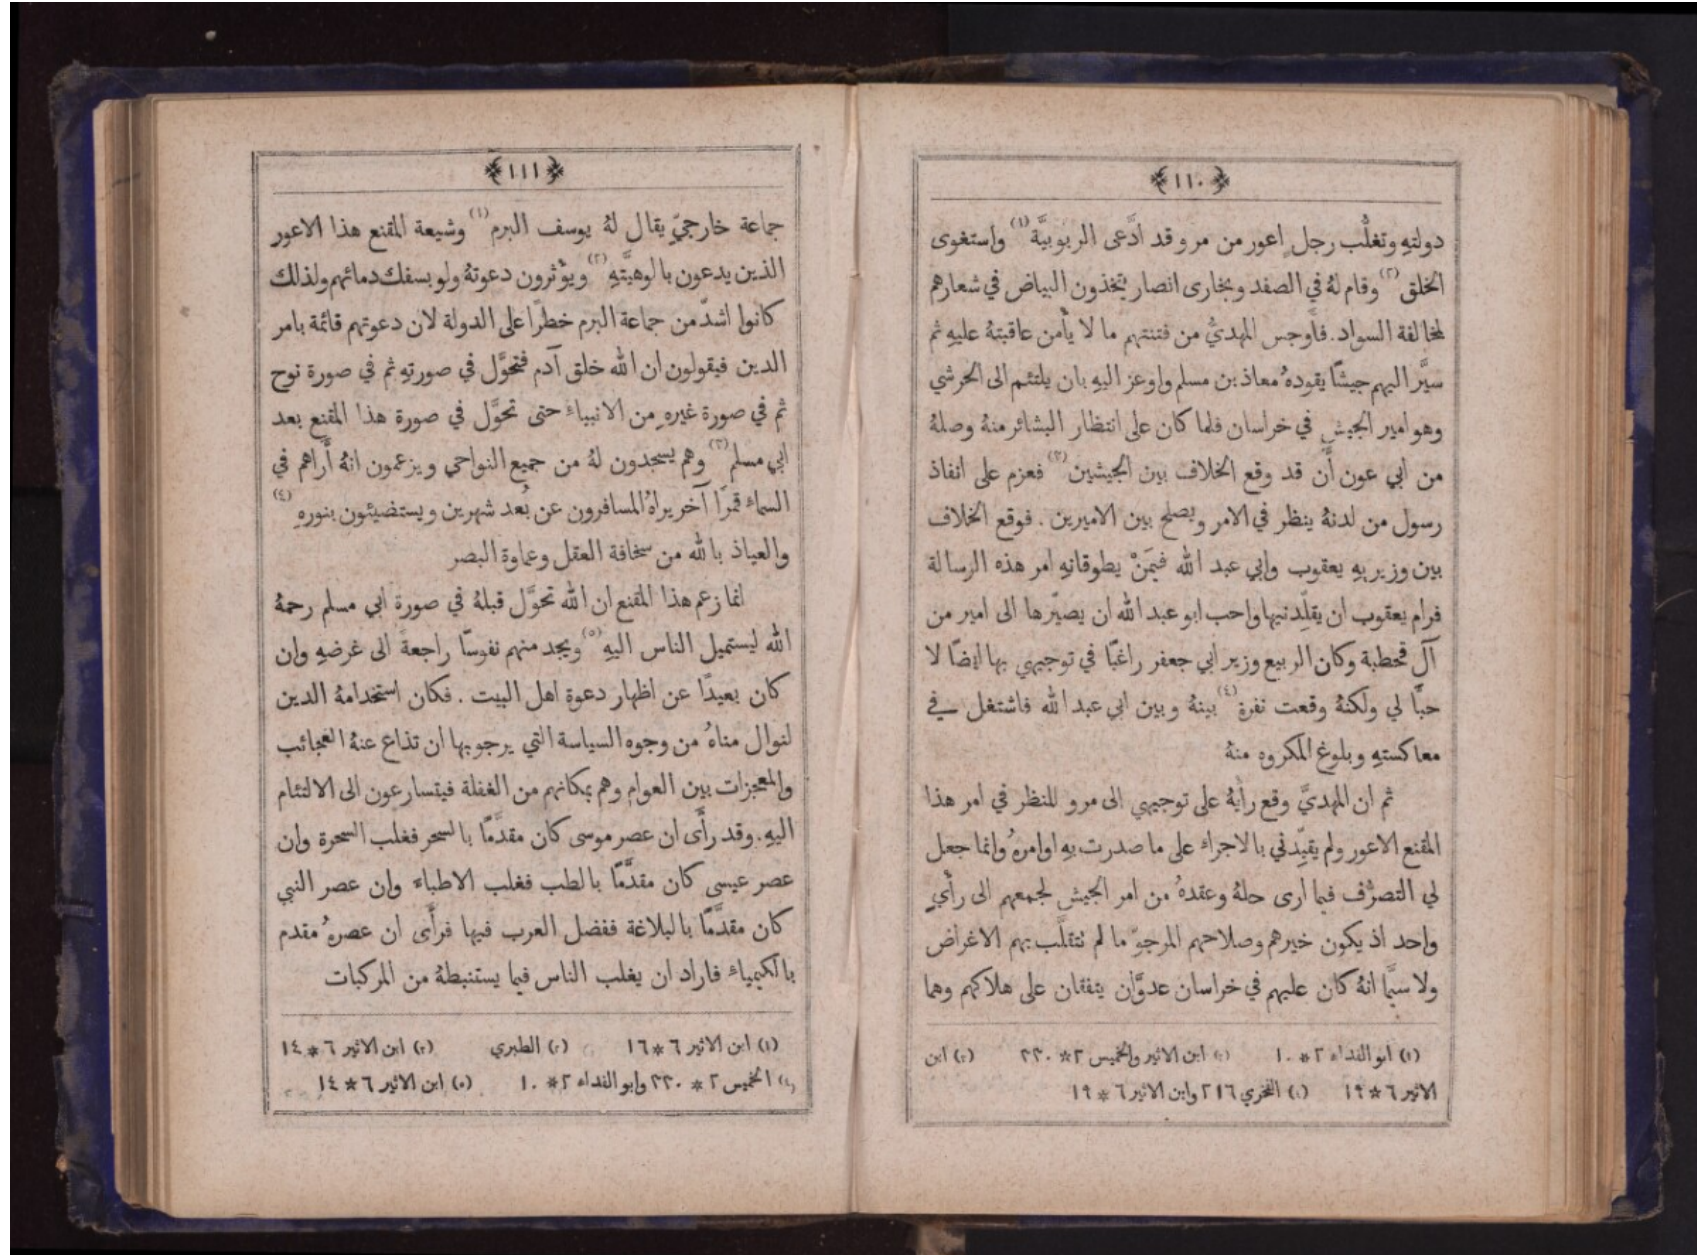 ﴿١١٠﴾
دولتهِ وتغلُّب رجل اعور من مرو قد ادَّعى الربوبيَّة (١) واستغوى
الخلق (٢) وقام لهُ في الصغد وبخارى انصار يتخذون البياض في شعارهم
لمخالفة السواد. فأَوجس المهديُّ من فتنتهم ما لا يأْمن عاقبتهُ عليهِ ثم
سيَّر اليهم جيشًا يقودهُ معاذ بن مسلم واوعز اليهِ بان يلتئم الى الحرشي
وهو امير الجيش في خراسان فلما كان على انتظار البشائر منهُ وصلهُ
من ابي عون أَن قد وقع الخلاف بين الجيشين (٣) فعزم على انفاذ
رسول من لدنهُ ينظر في الامر ويصلح بين الاميرين . فوقع الخلاف
بين وزيريهِ يعقوب وابي عبد الله فيمَنْ يطوقانهِ امر هذه الرسالة
فرام يعقوب ان يقلّدنيها واحب ابو عبد الله ان يصيّرها الى امير من
آل قحطبة وكان الربيع وزير ابي جعفر راغبًا في توجيهي بها ايضًا لا
حبًّا لي ولكنهُ وقعت نفرة (٤) بينهُ وبين ابي عبد الله فاشتغل في
معاكستهِ وبلوغ المكروه منهُ
ثم ان المهديَّ وقع رأيهُ على توجيهي الى مرو للنظر في امر هذا
المقنع الاعور ولم يقيّدني بالاجراء على ما صدرت بهِ اوامرهُ وانما جعل
لي التصرُّف فيما ارى حلهُ وعقدهُ من امر الجيش لجمعهم الى رأيٍ
واحد اذ يكون خيرهم وصلاحهم المرجوّ ما لم تتقلَّب بهم الاغراض
ولا سيَّما انهُ كان عليهم في خراسان عدوَّان يتفقان على هلاكهم وهما
(١) ابو الفداء ٢*١٠ (٢) ابن الاثير والخميس ٢*٣٣٠ (٣) ابن
الاثير ٦*١٩ (٤) الفخري ٢١٦ وابن الاثير ٦*١٩
﴿١١١﴾
جماعة خارجيّ يقال لهُ يوسف البرم (١) وشيعة المقنع هذا الاعور
الذين يدعون بالوهيَّتهِ (٢) ويؤْثرون دعوتهُ ولو بسفك دمائهم ولذلك
كانوا اشدّ من جماعة البرم خطرًا على الدولة لان دعوتهم قائمة بامر
الدين فيقولون ان الله خلق آدم فتحوَّل في صورتهِ ثم في صورة نوح
ثم في صورة غيرهِ من الانبياء حتى تحوَّل في صورة هذا المقنع بعد
ابي مسلم (٣) وهم يسجدون لهُ من جميع النواحي ويزعمون انهُ أَراهم في
السماء قمرًا آخر يراهُ المسافرون عن بُعد شهرين ويستضيئون بنورهِ (٤)
والعياذ بالله من سخافة العقل وعماوة البصر
انما زعم هذا المقنع ان الله تحوَّل قبلهُ في صورة ابي مسلم رحمهُ
الله ليستميل الناس اليهِ (٥) ويجد منهم نفوسًا راجعةً الى غرضهِ وان
كان بعيدًا عن اظهار دعوة اهل البيت . فكان استخدامهُ الدين
لنوال مناهُ من وجوه السياسة التي يرجو بها ان تذاع عنهُ العجائب
والمعجزات بين العوام وهم بمكانهم من الغفلة فيتسارعون الى الالتئام
اليهِ. وقد رأَى ان عصر موسى كان مقدَّمًا بالسحر فغلب السحرة وان
عصر عيسى كان مقدَّمًا بالطب فغلب الاطباء وان عصر النبي
كان مقدَّمًا بالبلاغة ففضل العرب فيها فرأَى ان عصرهُ مقدم
بالكيمياء فاراد ان يغلب الناس فيما يستنبطهُ من المركبات
(١) ابن الاثير ٦*١٦ (٢) الطبري (٣) ابن الاثير ٦*١٤
(٤) الخميس ٢*٣٣٠ وابو الفداء ٢*١٠ (٥) ابن الاثير ٦*١٤